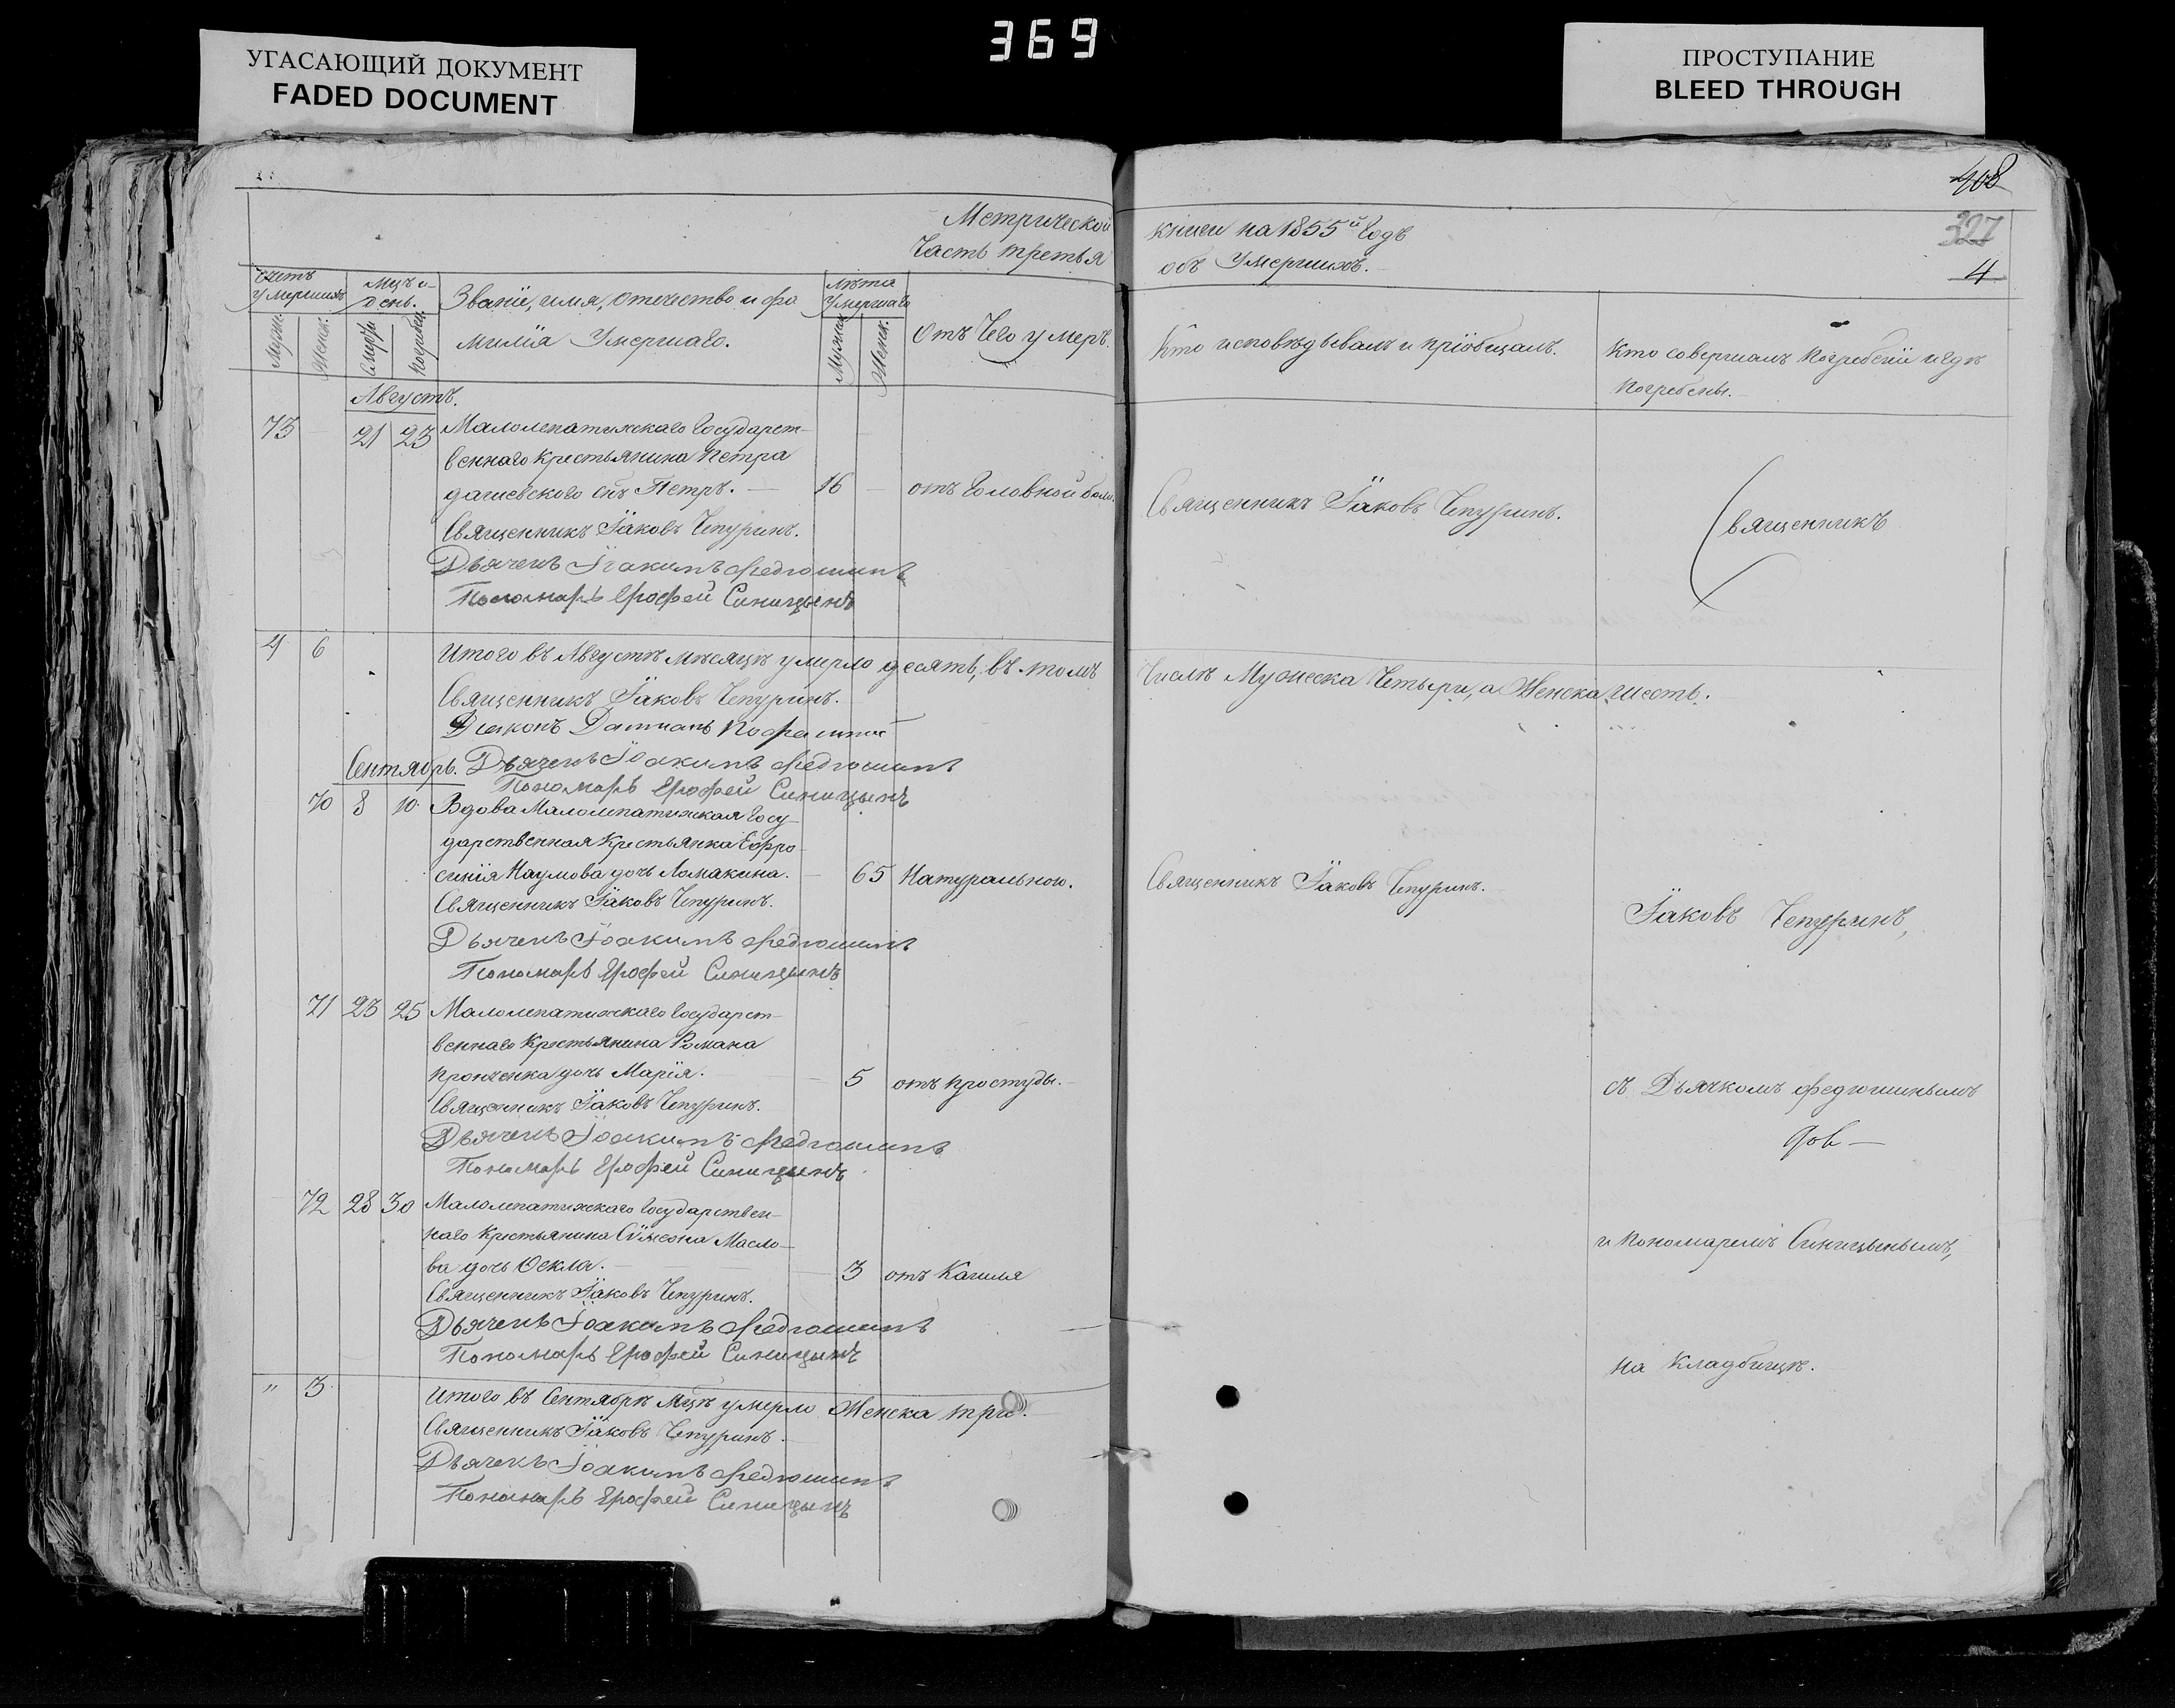 369
УГАСАЮЩИЙ ДОКУМЕНТ
FADED DOCUMENT
ПРОСТУПАНИЕ
BLEED THROUGH
408
327
4
Метрической
Часть третья
книги на 1855й Годъ
объ Умершихъ.
Счетъ Умершихъ
Мцъ и день.
Званіе, имя, отечество и фа
милія Умершаго.
Лѣта Умершаго
Отъ Чего умеръ.
Муж.
Женск.
Смерти
Погребен.
Мужеск.
Женск.
Кто исповѣдывалъ и пріобщалъ.
Кто совершалъ погребеніе и гдѣ
погребены.
Августъ.
73 21 23 Малолепатижскаго Государст-
веннаго крестьянина Петра
снъ Петръ. — 16 — отъ Головной боли.
Священникъ Іаковъ Чепуринъ.
Дьячекъ Іоакимъ Федюшинъ
Пономарь Ерофей Синицынъ
Священникъ Іаковъ Чепуринъ.
Священникъ
4 6 Итого въ Августѣ мѣсяцѣ умерло десять, въ томъ
Числѣ Мужеска Четыри, а Женска шесть.
Священникъ Іаковъ Чепуринъ.
Діаконъ Даміанъ
Сентябрь. Дьячекъ Іоакимъ Федюшинъ
Пономарь Ерофей Синицынъ
70 8 10 Вдова Малолепатижская Госу-
дарственная Крестьянка Ефро-
синія Наумова дочь Ломакина. — 65 Натуральною.
Священникъ Іаковъ Чепуринъ.
Дьячекъ Іоакимъ Федюшинъ
Пономарь Ерофей Синицынъ
Священникъ Іаковъ Чепуринъ.
Іаковъ Чепуринъ,
71 23 25 Малолепатижскаго Государст-
веннаго Крестьянина Романа
Пронченка дочь Марія. — 5 отъ простуды.
Священникъ Іаковъ Чепуринъ.
Дьячекъ Іоакимъ Федюшинъ
Пономарь Ерофей Синицынъ
съ Дьячкомъ Федюшинымъ
72 28 30 Малолепатижскаго Государствен-
наго Крестьянина Сѵмеона Масло-
ва дочь Ѳекла. — 3 отъ Кашля
Священникъ Іаковъ Чепуринъ.
Дьячекъ Іоакимъ Федюшинъ
Пономарь Ерофей Синицынъ
и Пономаремъ Синицынымъ,
на Кладбищѣ.
" 3 Итого въ Сентябрѣ Мцѣ умерло Женска три.
Священникъ Іаковъ Чепуринъ.
Дьячекъ Іоакимъ Федюшинъ
Пономарь Ерофей Синицынъ